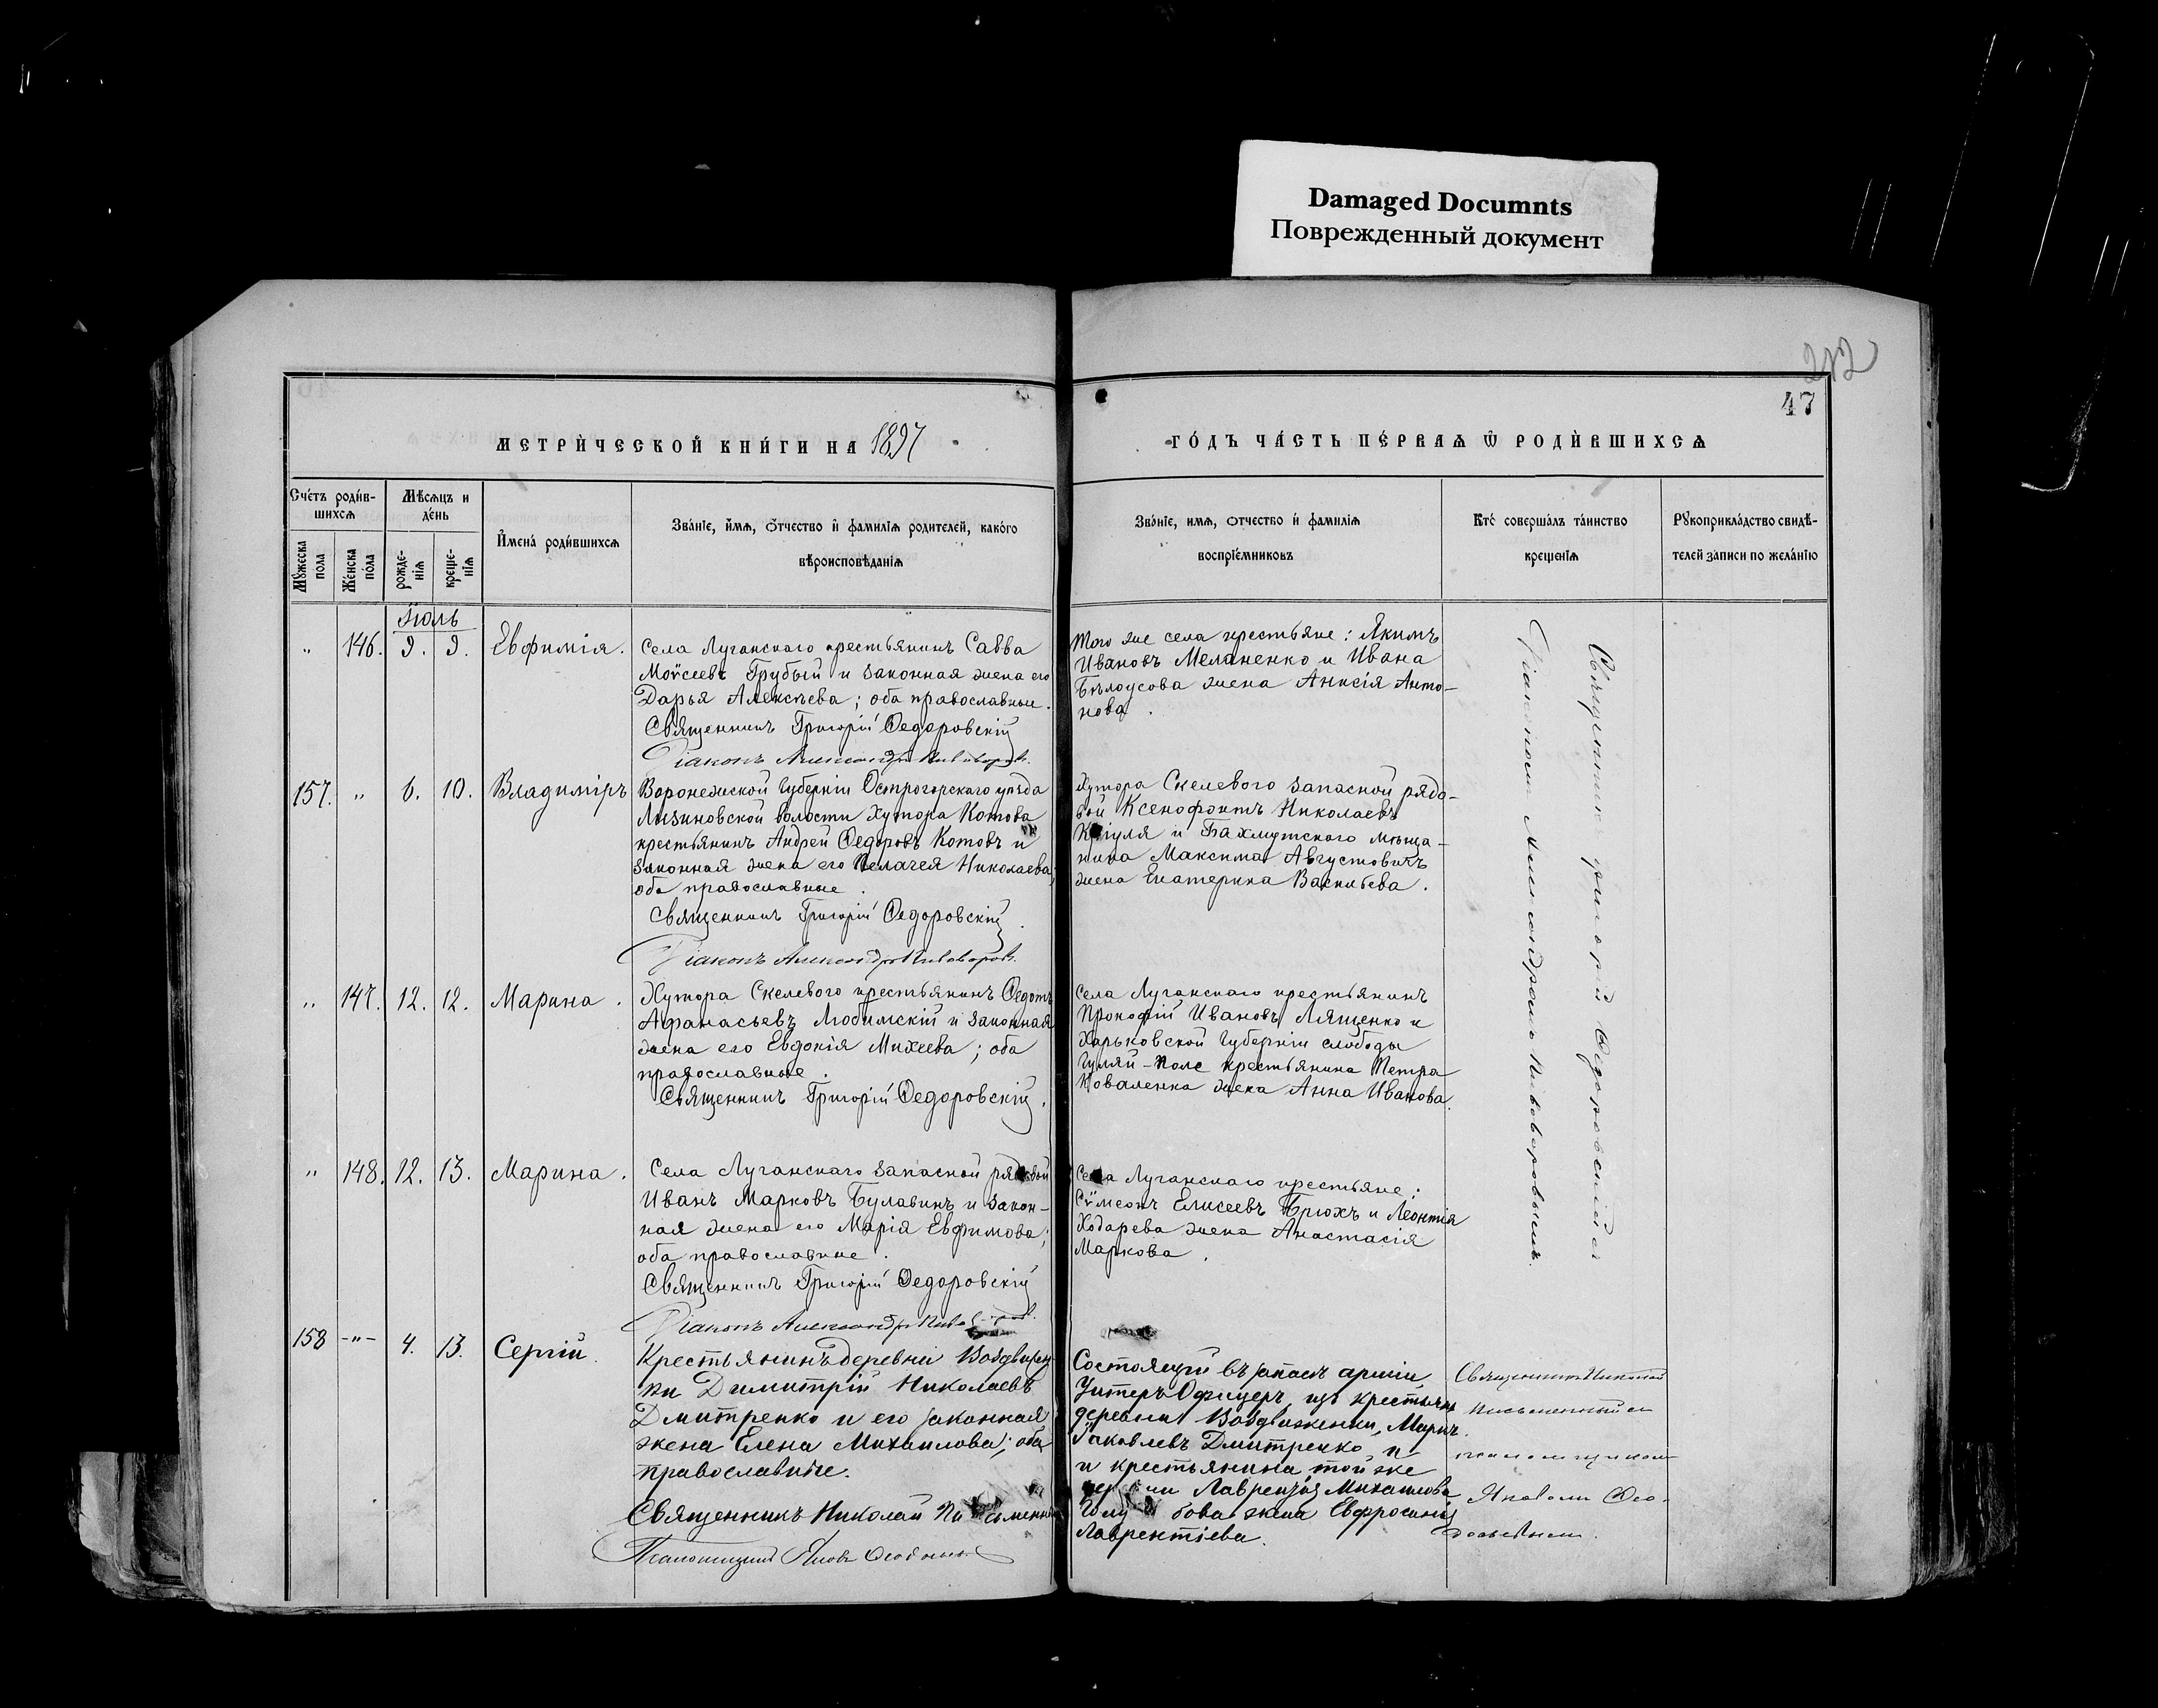 Damaged Documnts
Поврежденный документ
212
47
МЕТРИ́ЧЕСКОЙ КНИ́ГИ НА 1897
ГО́ДЪ ЧА́СТЬ ПЕ́РВАѦ Ѡ҆ РОДИ́ВШИХСѦ
Сче́тъ роди́в-
шихсѧ
Мѣ́сѧцъ и
де́нь
Мꙋ́жеска
по́ла
Же́нска
по́ла
рожде-
нїѧ
креще-
нїѧ
И҆мена̀ роди́вшихсѧ
Зва́нїе, и҆́мѧ, ѻ҆́тчество и҆ фамилїѧ родителей, како́гѡ
вѣроисповѣ́данїѧ
Зва́нїе, имѧ, ѻтчество и҆ фамилїѧ
воспрїе́мниковъ
Кто̀ соверша́лъ та́инство
креще́нїѧ
Рꙋкоприкла́дство свидѣ́-
телей за́писи по жела́нїю
Іюль
" 146. 9. 9. Евфимія.
Села Луганскаго крестьянинъ Савва
Моѵсеевъ Грубый и законная жена его
Дарья Алексѣева; оба православные.
Священникъ Григорій Ѳедоровскій
Діаконъ Александръ Пивоваровъ.
Того же села крестьяне: Якимъ
Ивановъ Меланенко и Ивана
Бѣлоусова жена Анисія Анто-
нова.
157. " 6. 10. Владиміръ
Воронежской губерніи Острогорскаго уѣзда
Лизиновской волости Хутора Котова
крестьянинъ Андрей Ѳедоровъ Котовъ и
законная жена его Пелагея Николаева;
оба православные.
Священникъ Григорій Ѳедоровскій.
Діаконъ Александръ Пивоваровъ.
Хутора Скелевого запасной рядо-
вой Ксенофонтъ Николаевъ
и Бахмутскаго мѣща-
нина Максима Августовичъ
жена Екатерина Васильева.
" 147. 12. 12. Марина.
Хутора Скелевого крестьянинъ Ѳедотъ
Афанасьевъ Любимскій и законная
жена его Евдокія Михеева; оба
православные.
Священникъ Григорій Ѳедоровскій.
Села Луганскаго крестьянинъ
Прокофій Ивановъ Лященко и
Харьковской губерніи слободы
Гуляй-Поле крестьянина Петра
Коваленка жена Анна Иванова.
" 148. 12. 13. Марина.
Села Луганскаго запасной рядовой
Иванъ Марковъ Булавинъ и закон-
ная жена его Марія Евфимова;
оба православные.
Священникъ Григорій Ѳедоровскій
Діаконъ Александръ Пивоваровъ.
Села Луганскаго крестьяне:
Сѵмеонъ Елисеевъ Брюхъ и Леонтія
Ходарева жена Анастасія
Маркова.
Священникъ Григорій Ѳедоровскій съ
Діакономъ Александромъ Пивоваровымъ.
158 -"- 4. 13. Сергій.
Крестьянинъ деревни Воздвижен-
ки Димитрій Николаевъ
Дмитренко и его законная
жена Елена Михаилова; оба
православные.
Священникъ Николай Письменный
Псаломщикъ Яковъ
Состоящій въ запасѣ арміи
Унтеръ-Офицеръ, изъ крестьянъ
деревни Воздвиженки, Маркъ
Іаковлевъ Дмитренко и
и крестьянина той же
деревни Лаврентія Михаилова
жена Евфросинія
Лаврентіева.
Священникъ Николай
Письменный съ
псаломщикомъ
Яковомъ